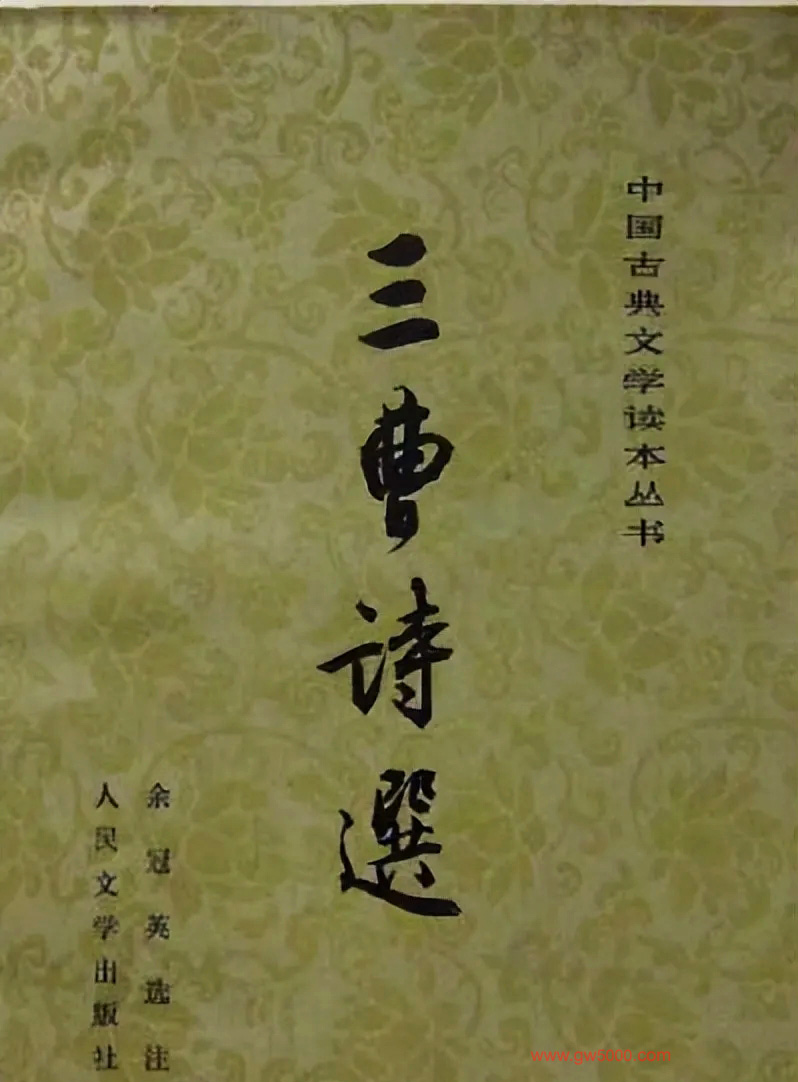 中国古典文学读本丛书
三曹詩選
余冠英选注
人民文学出版社
www.gw5000.com